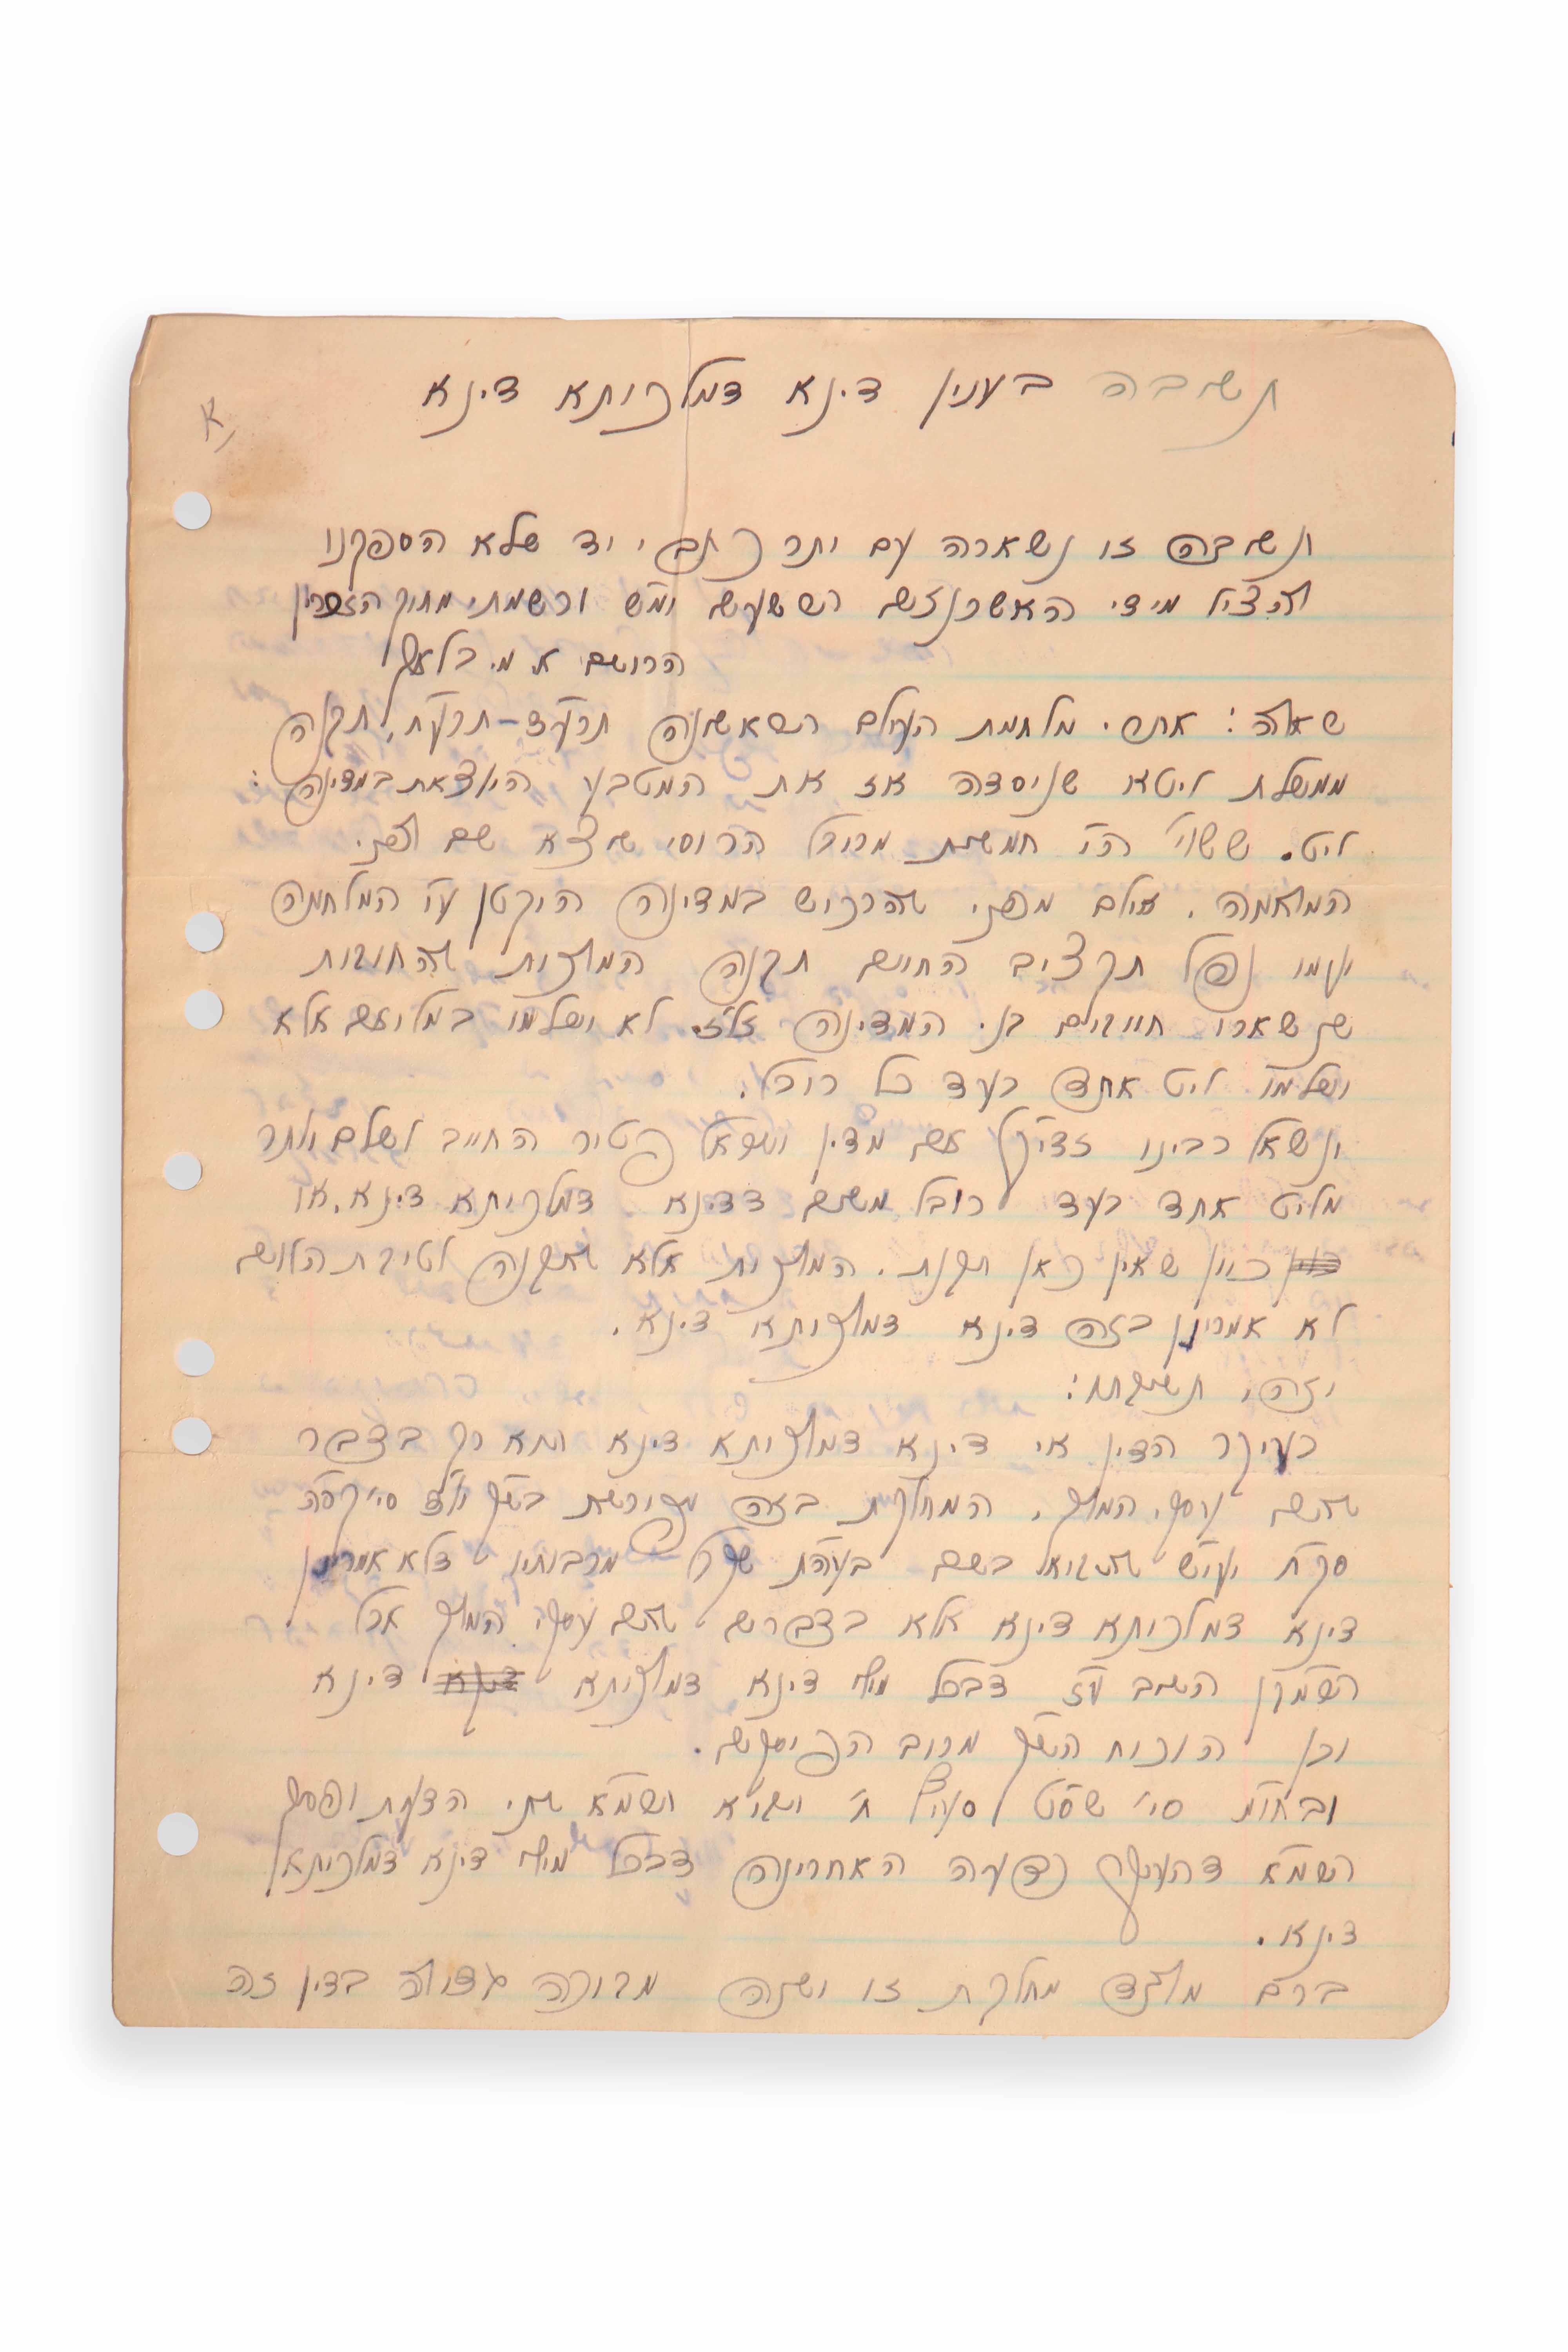 תשובה בענין דינא דמלכותא דינא
א
תשובה זו נשארה עם יתר כתבי יד שלא הספקנו
להציל מידי האשכנזים הרשעים ימ״ש ורשמתי מתוך הזכרון
הרושם א. מ. בלאך
שאלה: אחרי מלחמת העולם הראשונה תרע״ד–תרע״ח, תקנה
ממשלת ליטא שניסדה אז את המטבע היוצאת במדינה:
ליט. ששוי׳ הי׳ חמשית מרובל הרוסי שיצא שם לפני
המלחמה. אולם מפני שהרכוש במדינה הוקטן ע״י המלחמה
ועמו נפל תקציב החיים תקנה המלכות שהחובות
שנשארו חייבים בני המדינה זל״ז לא ישלמו במלואם אלא
ישלמו ליט אחד בעד כל רובל.
ונשאל רבינו זצוק״ל אם מדין ישראל פטור החייב לשלם יותר
מליט אחד בעד רובל משום דדינא דמלכותא דינא. או
כיון שאין כאן תקנת המלכות אלא שתקנה לטובת הלוים
לא אמרינן בזה דינא דמלכותא דינא.
וזהו תשובתו:
בעיקר הדין אי דינא דמלכותא דינא הוא רק בדבר
שהם עסקי המלך. המחלוקת בזה מפורשת בש״ך יו״ד סי׳ קס״ה
סק״ח ועיי״ש שהביא בשם בעה״ת שקבל מרבותיו דלא אמרינן
דינא דמלכותא דינא אלא בדברים שהם עסקי המלך אבל
הרמב״ן השיב ע״ז דבכל מילי דינא דמלכותא דינא
וכן הוכיח הש״ך מרוב הפוסקים.
ובחו״מ סי׳ שס״ט סעיף ח׳ הביא הרמ״א שתי הדעות ופסק
הרמ״א דהעיקר כדעה האחרונה דבכל מילי דינא דמלכותא
דינא.
ברם מלבד מחלוקת זו ישנה מבוכה גדולה בדין זה